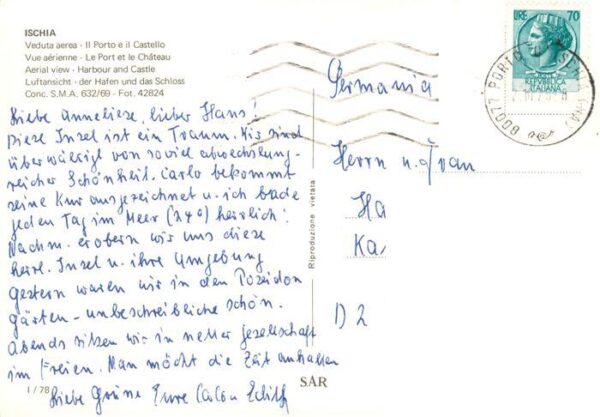 ISCHIA
Veduta aerea - Il Porto e il Castello
Vue aérienne - Le Port et le Château
Aerial view - Harbour and Castle
Luftansicht - der Hafen und das Schloss
Conc. S.M.A. 632/69 - Fot. 42824
Liebe Anneliese, lieber Hans!
Diese Insel ist ein Traum. Wir sind
überwältigt von soviel abwechslung-
reicher Schönheit. Carlo bekommt
seine Kur ausgezeichnet u. ich bade
jeden Tag im Meer (24°) herrlich!
Nachm. erobern wir uns diese
herrl. Insel u. ihre Umgebung
Gestern waren wir in den Poseidon
gärten - unbeschreibliche schön.
Abends sitzen wir in netter Gesellschaft
im Freien. Man möcht die Zeit anhalten
Liebe Grüsse Eure Edith
I / 78
Riproduzione vietata
SAR
LIRE 70
REPVBBLICA
ITALIANA
80077 PORTO D'ISCHIA (NA)
Germania
Herrn u.
Ha
Ka
D 2